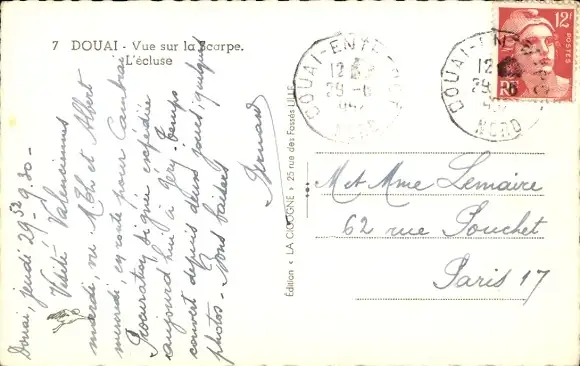 7 DOUAI - Vue sur la Scarpe.
L'écluse
Douai, jeudi 29 - 9.30 -
Visité Valenciennes
mardi, vu M Th et Albert
mercredi, en route pour Cambrai
Procuration signée expédiée
aujourd'hui à Géry. Temps
couvert depuis deux jours quelques
photos - Bons baisers
Bernard
Edition « LA CIGOGNE » 25 rue des Fossés LILLE
DOUAI-ENTREPOT
12
29 - 6
NORD
DOUAI-ENTREPOT
12
29 - 6
NORD
12F
POSTES
RF
M et Mme Lemaire
62 rue Pouchet
Paris 17